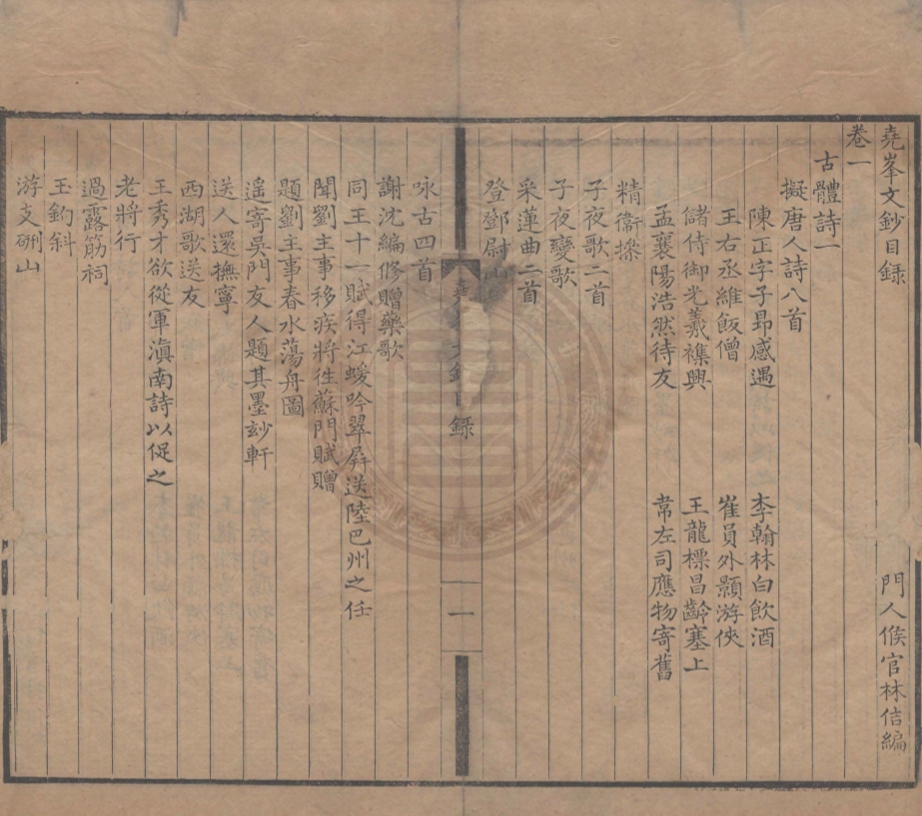 堯峯文鈔目録
門人候官林佶編
卷一
古體詩一
擬唐人詩八首
陳正字子昻感遇
李翰林白飲酒
王右丞維飯僧
崔員外顥游俠
儲侍御光羲襍興
王龍標昌齡塞上
孟襄陽浩然待友
常左司應物寄舊
精衞操
子夜歌二首
子夜變歌
采蓮曲二首
登鄧尉山
堯 文鈔目録
一
咏古四首
謝沈編修贈藥歌
同王十一賦得江蝯吟翠屛送陸巴州之任
聞劉主事移疾將徃蘇門賦贈
題劉主事春水蕩舟圖
遥寄吳門友人題其墨玅軒
送人還撫寧
西湖歌送友
王秀才欲從軍滇南詩以促之
老將行
過露筋祠
玉鉤斜
游支硎山